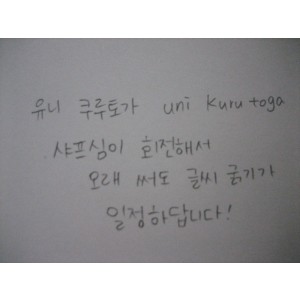 유니 쿠루토가 uni kuru toga
샤프심이 회전해서
오래 써도 글씨 굵기가
일정하답니다!